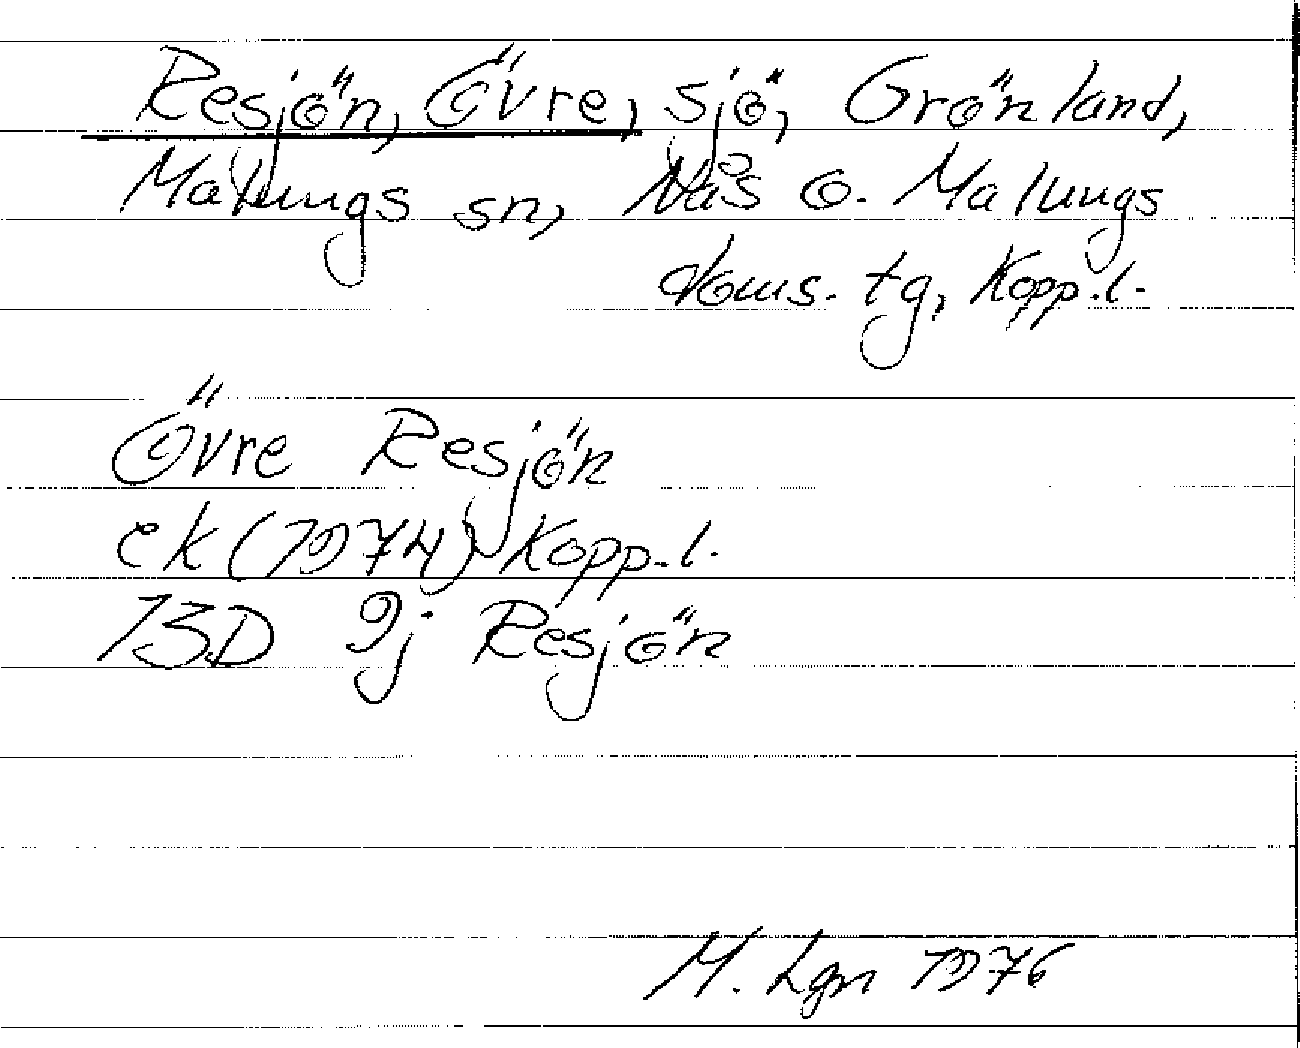 Resjön, Övre, sjö, Grönland,
Malungs sn, Nås o. Malungs
doms. tg, Kopp.l.
Övre Resjön
ek (1974) Kopp.l.
13D 9j Resjön
M. Lgn 1976